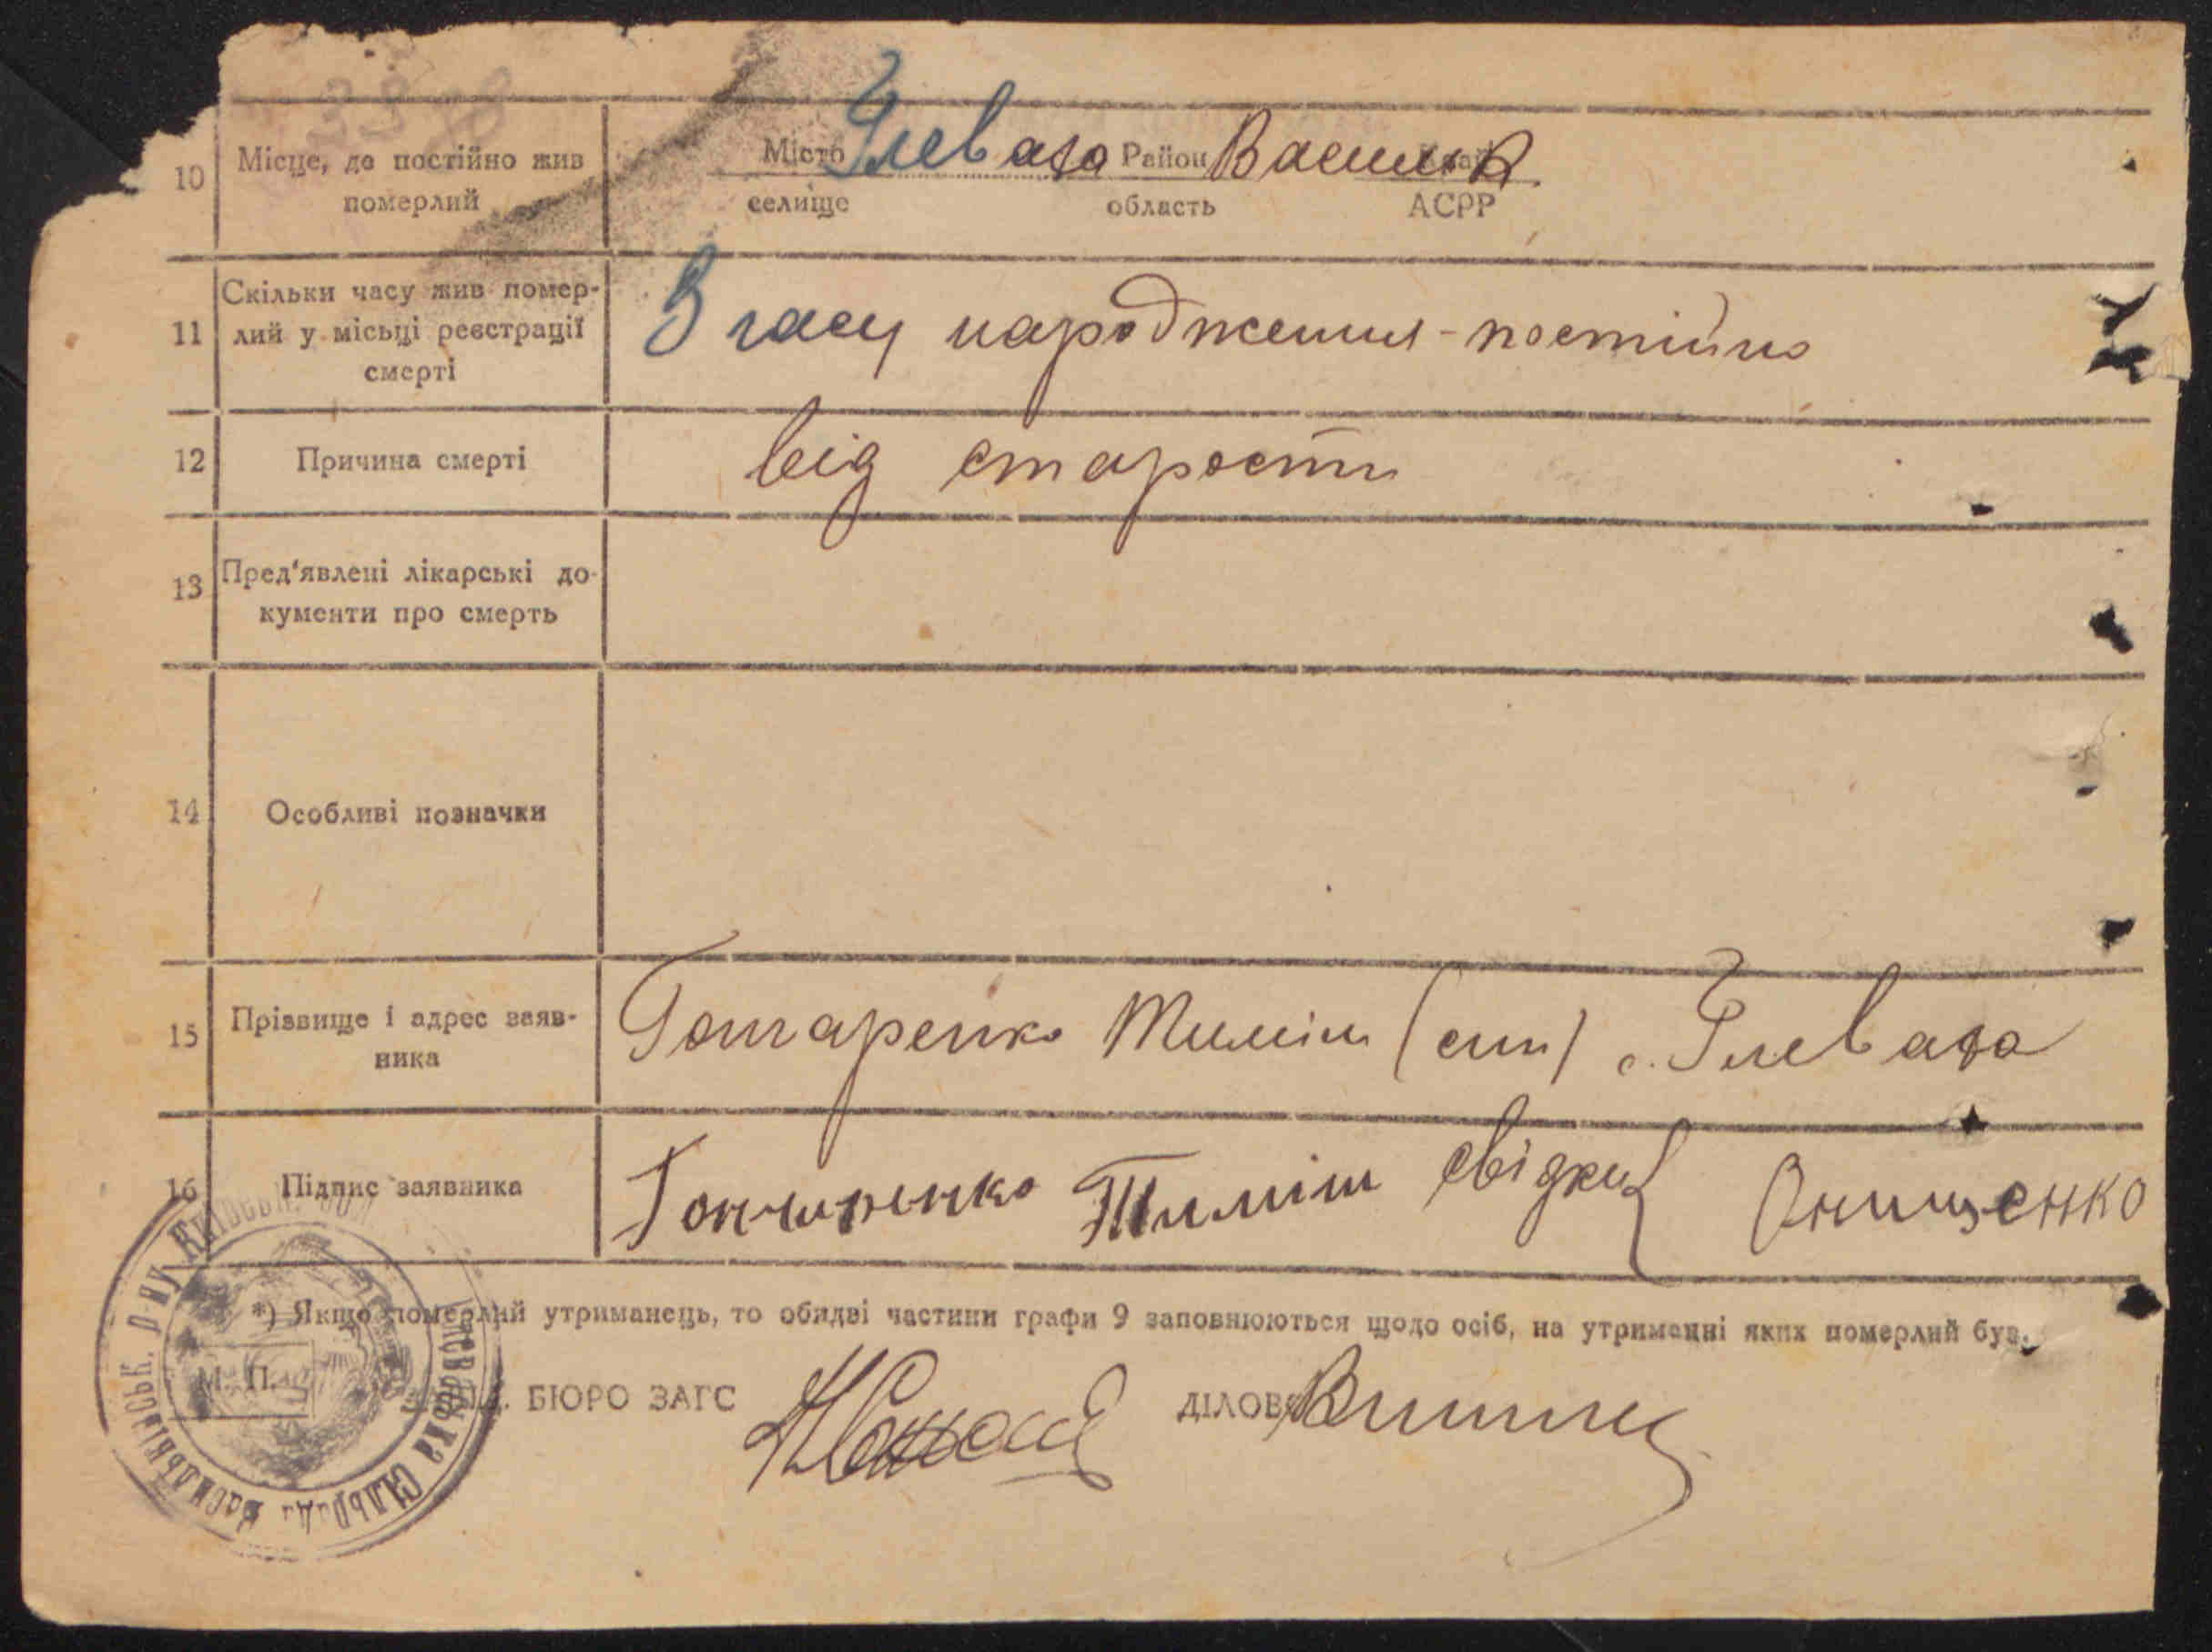 33
10 Місце, де постійно жив Місто Глеваха Район Васильк Край
померлий селище область АСРР
Скільки часу жив помер- З часу народження - постійно
11 лий у місьці реєстрації
смерті
12 Причина смерті від старости
13 Пред'явлені лікарські до-
кументи про смерть
14 Особливі позначки
15 Прізвище і адрес заяв- Гончаренко Тиміш (син) с. Глеваха
ника
16 Підпис заявника Гончаренко Тиміш свідки Онищенко
*) Якщо померлий утриманець, то обидві частини графи 9 заповнюються щодо осіб, на утриманні яких померлий був.
М. П. БЮРО ЗАГС ДІЛОВ
Васильківськ. р-ну Київськ. сільрада